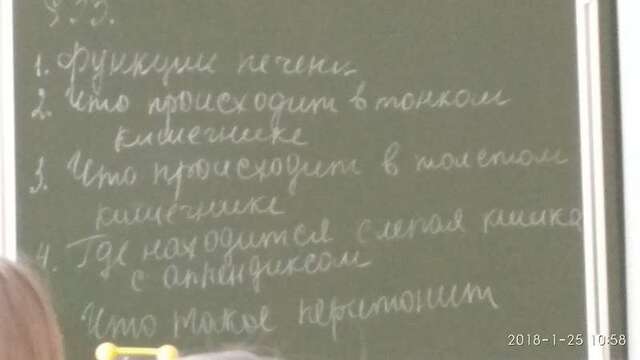 1. Функции печени
2. Что происходит в тонком
кишечнике
3. Что происходит в толстом
кишечнике
4. Где находится слепая кишка
с аппендиксом
Что такое перитонит
2018-1-25 10:58